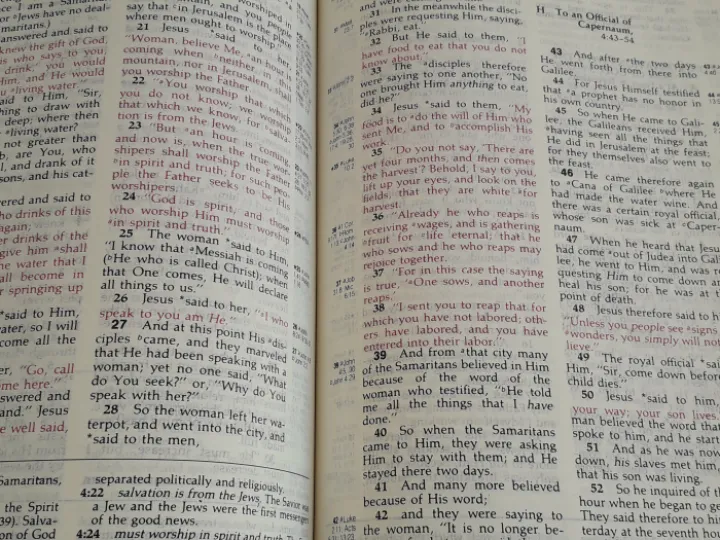 ce I am a Samaritan
or Jews have no deal-
maritans.)
answered and said to
knew the gift of God,
is who says to you
drink," you would
Him, and He would
living water."
said to Him, "Sir,
hing to draw with
deep; where then
living water?
not greater than
b, are You, who
l, and drank of it
sons, and his cat-
vered and said to
who drinks of this
again;
er drinks of the
give him shall
he water that I
all become in
r springing up
said to Him,
vater, so I will
come all the
er, "Go, call
ome here."
swered and
and." Jesus
e well said,
Samaritans,
the Spirit
39). Salva-
on of God
worshiped in
tain, and you people
say that in Jerusalem is the place
where men ought to worship."
21 Jesus *said to her,
"Woman, believe Me, an hour is
coming when neither in this
mountain, nor in Jerusalem, shall
you worship the Father.
22 "You worship that which
you do not know; we worship
that which we know; for salva-
tion is from the Jews.
23 "But an hour is coming,
and now is, when the true wor-
shipers shall worship the Father
in spirit and truth; for such peo-
ple the Father seeks to be His
worshipers.
24 "God is spirit, and those
who worship Him must worship
in spirit and truth."
25 The woman *said to Him,
"I know that Messiah is coming
(He who is called Christ); when
that One comes, He will declare
all things to us."
26 Jesus *said to her, "I who
speak to you am He."
27 And at this point His dis-
ciples came, and they marveled
that He had been speaking with a
woman; yet no one said, "What
do You seek?" or, "Why do You
speak with her?"
28 So the woman left her wa-
terpot, and went into the city, and
*said to the men,
separated politically and religiously.
4:22 salvation is from the Jews. The Savior was
a Jew and the Jews were the first messengers
of the good news.
4:24 must worship in spirit and truth.
and were
31 In the meanwhile the disci-
ples were requesting Him, saying,
"Rabbi, eat."
32 But He said to them, "I
have food to eat that you do not
know about."
33 The disciples therefore
were saying to one another, "No
one brought Him anything to eat,
did he?"
34 Jesus *said to them, "My
food is to do the will of Him who
sent Me, and to accomplish His
work.
35 "Do you not say, 'There are
yet four months, and then comes
the harvest'? Behold, I say to you,
lift up your eyes, and look on the
fields, that they are white for
harvest.
36 "Already he who reaps is
receiving wages, and is gathering
fruit for life eternal; that he
who sows and he who reaps may
rejoice together.
37 "For in this case the saying
is true, 'One sows, and another
reaps.'
38 "I sent you to reap that for
which you have not labored; oth-
ers have labored, and you have
entered into their labor."
39 And from that city many
of the Samaritans believed in Him
because of the word of the
woman who testified, "He told
me all the things that I have
done."
40 So when the Samaritans
came to Him, they were asking
Him to stay with them; and He
stayed there two days.
41 And many more believed
because of His word;
42 and they were saying to
the woman, "It is no longer be-
H. To an Official of
Capernaum,
4:43-54
43 And after the two days
He went forth from there into
Galilee.
44 For Jesus Himself testified
that a prophet has no honor in
his own country.
45 So when He came to Gali-
lee, the Galileans received Him,
having seen all the things that
He did in Jerusalem at the feast;
for they themselves also went to
the feast.
46 He came therefore again
to Cana of Galilee where He
had made the water wine. And
there was a certain royal official,
whose son was sick at Caper-
naum.
47 When he heard that Jesu
had come out of Judea into Gali
lee, he went to Him, and was r
questing Him to come down an
heal his son; for he was at t
point of death.
48 Jesus therefore said to h
"Unless you people see signs
wonders, you simply will not
lieve."
49 The royal official *sai
Him, "Sir, come down before
child dies."
50 Jesus *said to him,
your way; your son lives.
man believed the word that
spoke to him, and he start
51 And as he was now
down, his slaves met him,
that his son was living.
52 So he inquired of th
hour when he began to ge
They said therefore to hi
terday at the seventh hou